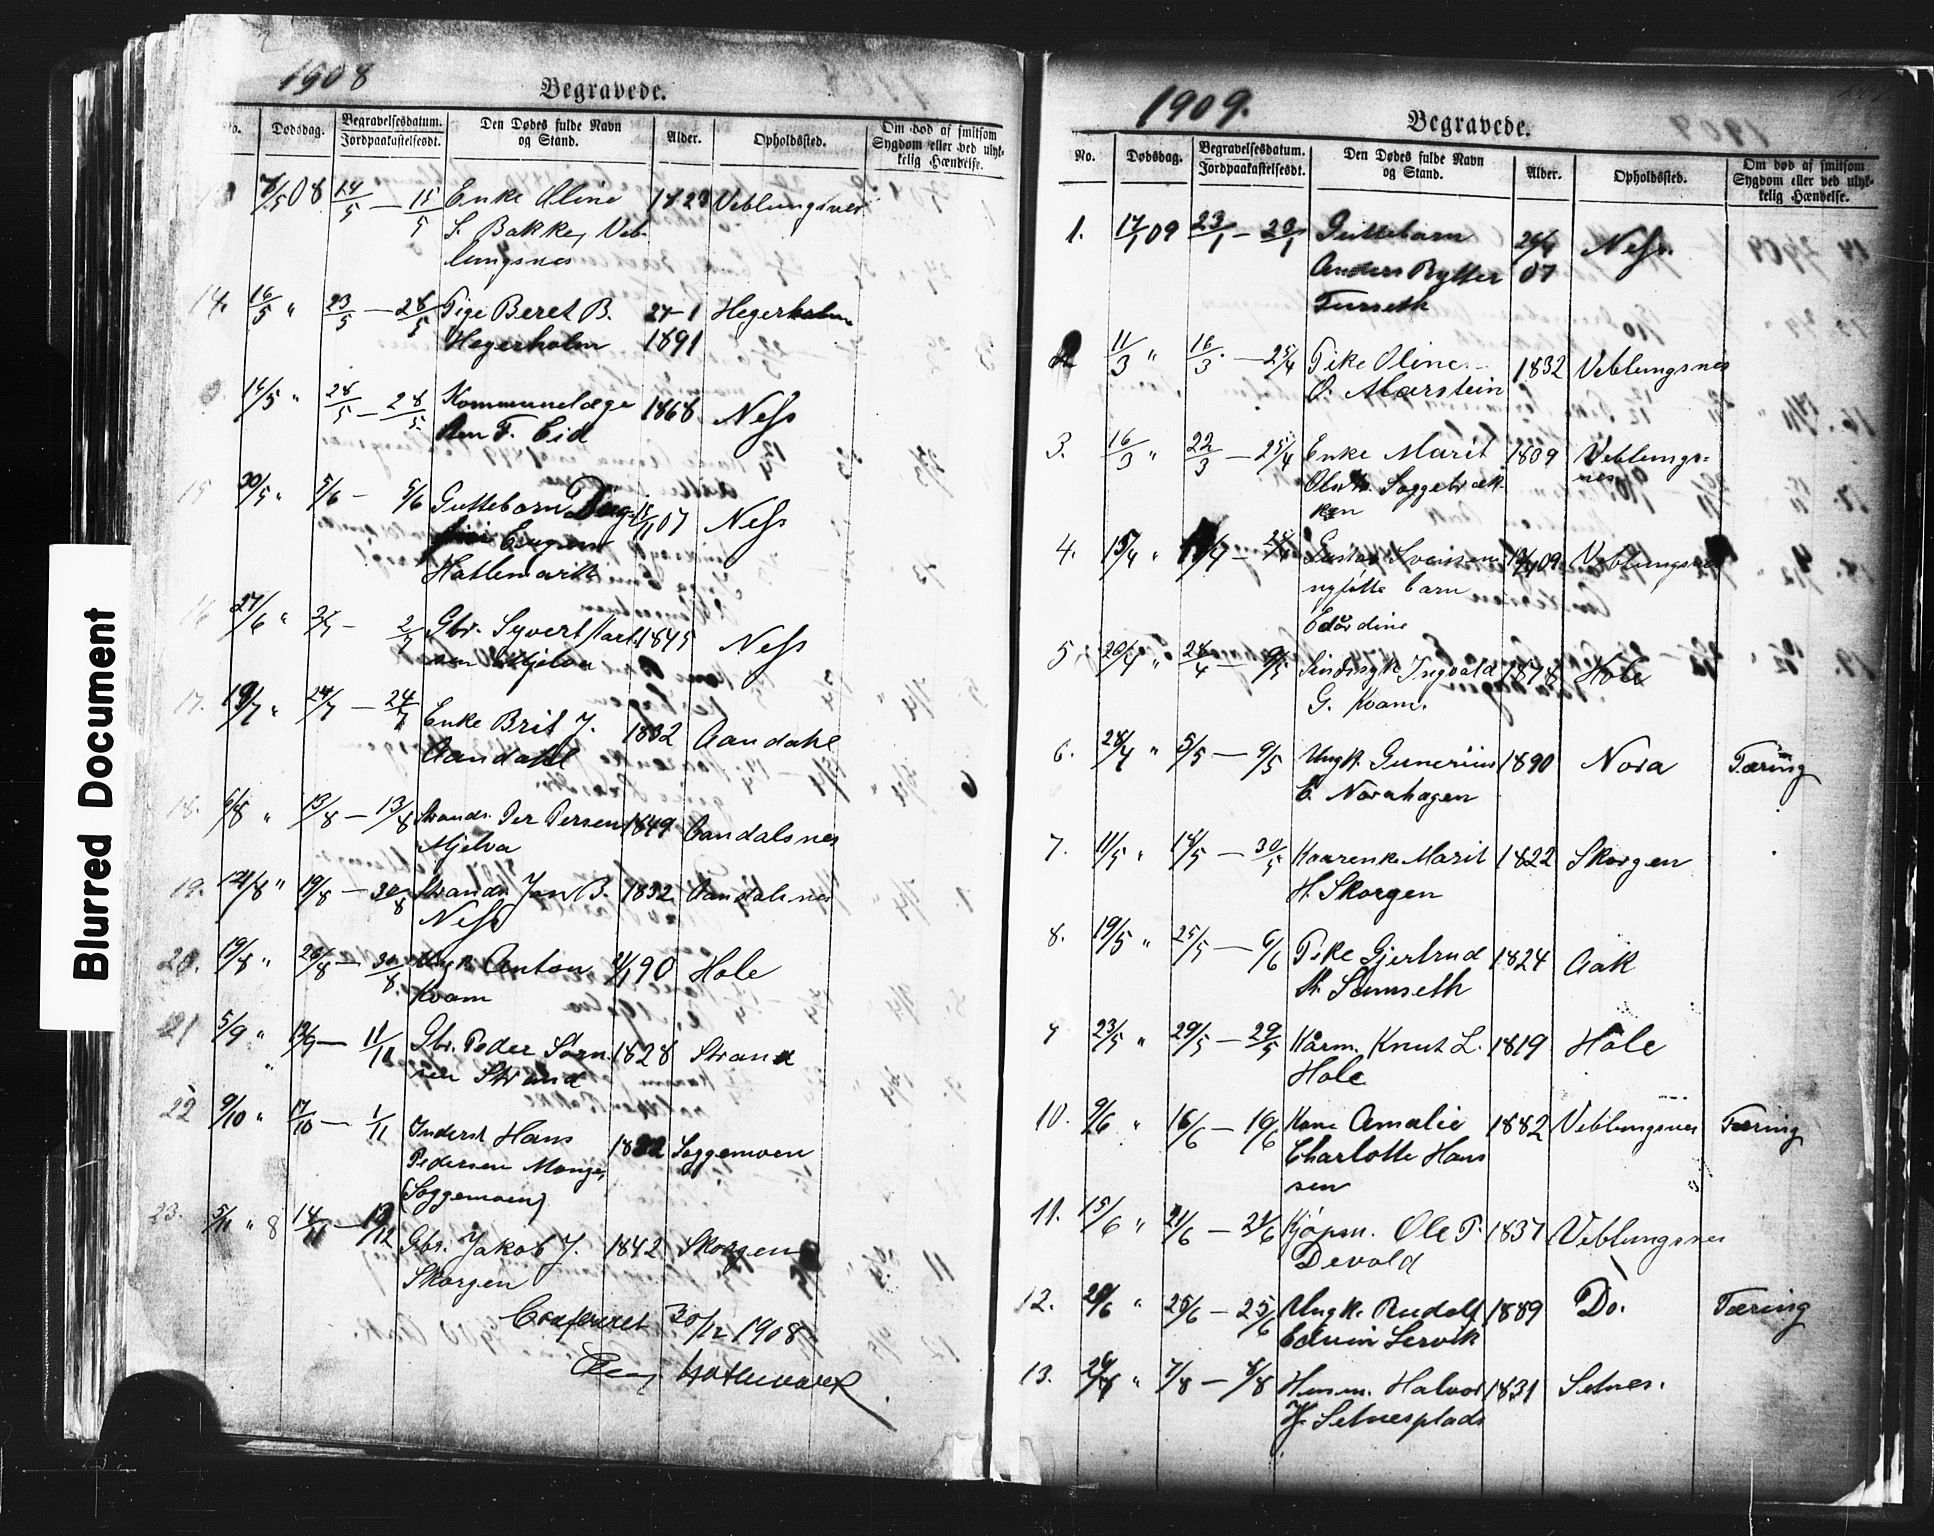 Blurred Document
1908
Begravede.
No. Dødsdag. Begravelsesdatum. Jordpaakastelsesdt. Den Dødes fulde Navn og Stand. Alder. Opholdssted. Om død af smitsom Sygdom eller ved ulykkelig Hændelse.
7/5 08 14/5 — 15/5 Enke Oline 1823 Veblungsnes
S. Bakke, Veb-
lungsnes
14. 16/5 " 23/5 — 28/5 Pige Beret B. 24-1 Hegerholm
Hegerholm 1891
14/5 " 28/5 — 28/5 Kommunelæge 1868 Ness
F. Eid
15 30/5 " 5/6 — 5/6 Guttebarn 07 Ness
Hatlemark
16 27/6 " — 2/7 Gbr. Syvert 1845 Ness
sen Mjelva
17. 19/7 " 24/7 — 24/7 Enke Brit J. 1832 Aandahl
Aandahl
18. 6/8 " 13/8 — 13/8 Strands. Per Persen 1849 Aandalsnes
Mjelva
19. 12/8 " 19/8 — 30/8 Strands. Jon B. 1832 Aandalsnes
Ness
20. 19/8 " 26/8 — 30/8 Ungk. Anton 90 Hole
Kvam
21 5/9 " 12/9 — Gbr. Peder Sørn 1828 Strand
sen Strand
22 9/10 " 17/10 — 1/11 Inderst Hans Soggemoen
Pedersen Monge,
(Soggemoen)
23. 5/11 " 8 14/11 — Gbr. Jakob J. 1842 Skorgen
Skorgen
Confereret 30/12 1908
Hatlemark
1909.
Begravede.
No. Dødsdag. Begravelsesdatum. Jordpaakastelsesdt. Den Dødes fulde Navn og Stand. Alder. Opholdssted. Om død af smitsom Sygdom eller ved ulykkelig Hændelse.
1. 17/1 09 23/1 — Guttebarn Ness.
Anders Rytter 07
Furseth
2 11/3 " 16/3 — 25/4 Pike Oline 1832 Veblungsnes
O. Marstein
3. 16/3 " 22/3 — 25/4 Enke Marit 1809 Veblungs-
Soggebræk- nes
ken
4. 15/4 " Gustav Svensens 09 Veblungsnes
nyfødte barn
Edvardine
5 20/4 " 28/4 — 9/5 Sindssyk Ingvald 1878 Hole
G. Kvam.
6. 28/4 " 5/5 — 9/5 Ungk. Gunerius 1890 Nora Tæring
E. Norahagen
7. 11/5 " 18/5 — 30/5 Kaarenke Marit 1822 Skorgen
H. Skorgen
8. 19/5 " 25/5 — 6/6 Pike Gjertrud 1824 Aak
Sumseth
9 23/5 " 29/5 — 29/5 Kårm. Knut L. 1819 Hole
Hole
10. 9/6 " 16/6 — 16/6 Kone Amalie 1882 Veblungsnes Tæring
Charlotte Han
sen
11. 15/6 " 21/6 — 21/6 Kjøpm. Ole P. 1837 Veblungsnes
Devold
12. 20/6 " 25/6 — 25/6 Ungk. Rudolf 1889 Do. Tæring
Edvin Lervik
13. " 7/8 — 8/8 Husm. Halvor 1831 Setnes.
Setnesplads